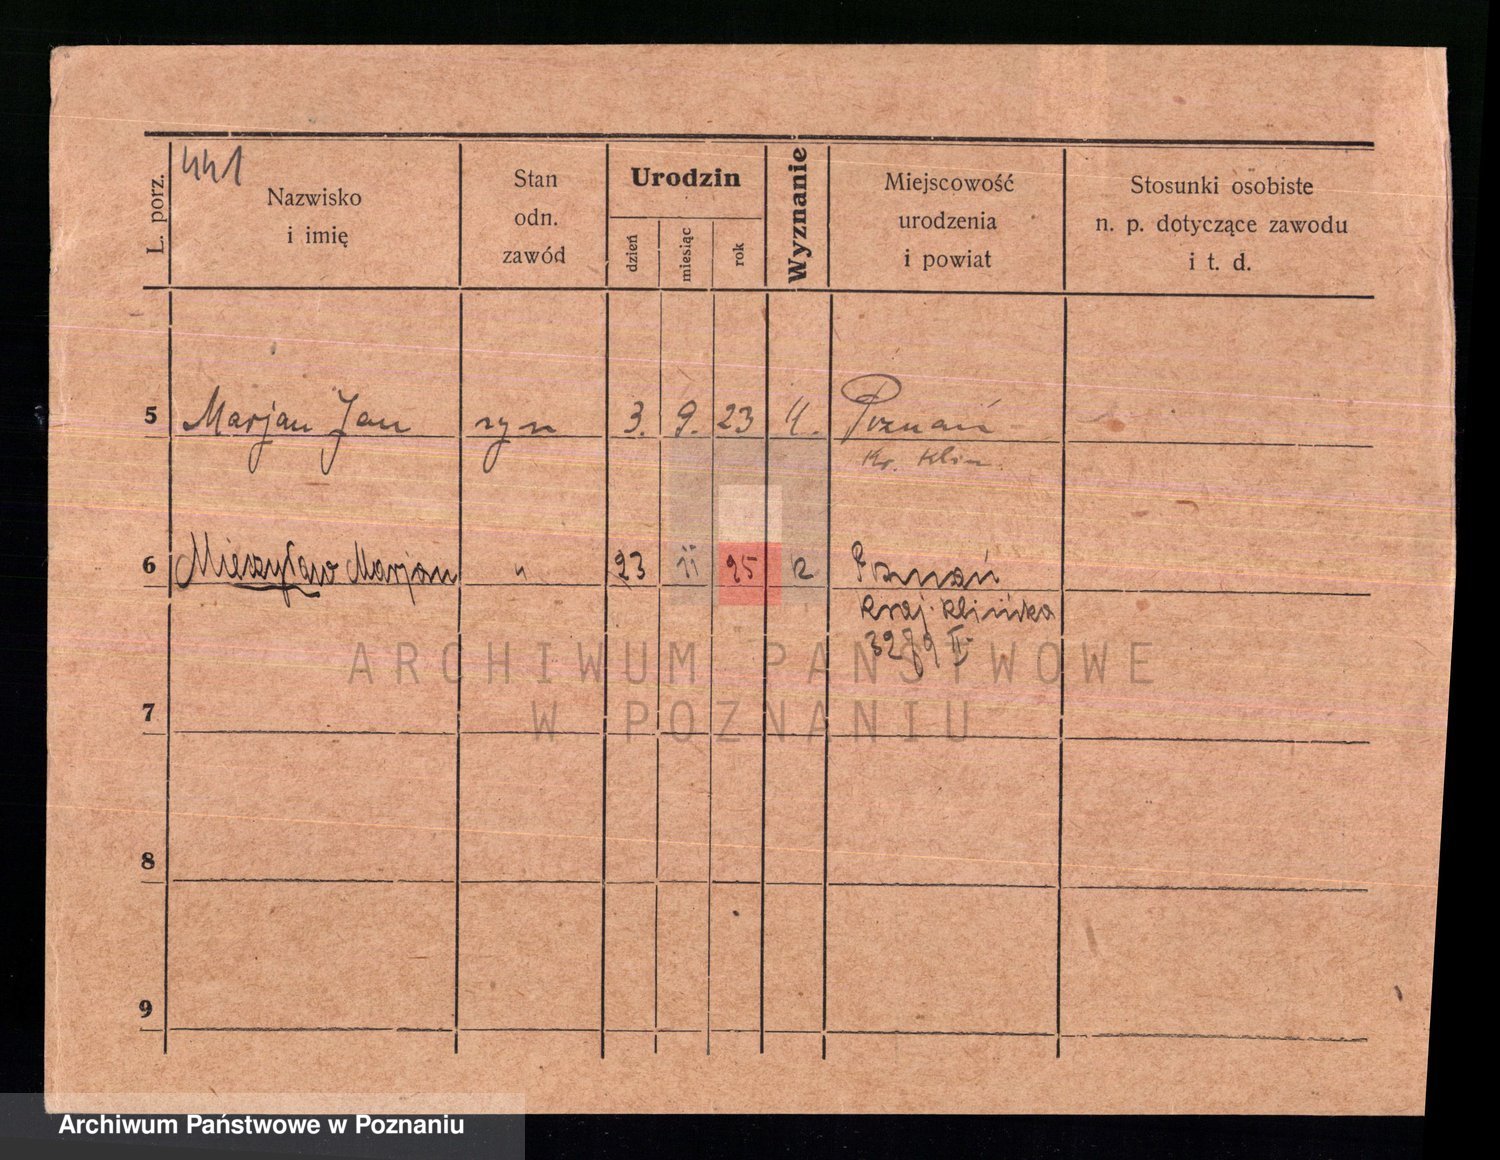 441
L. porz.
Nazwisko
i imię
Stan
odn.
zawód
Urodzin
dzień
miesiąc
rok
Wyznanie
Miejscowość
urodzenia
i powiat
Stosunki osobiste
n. p. dotyczące zawodu
i t. d.
5 Marjan Jan syn 3. 9. 23 Poznań
Kr. Klin.
6 Mieczysław Marjan " 23 11 25 Poznań
Kraj. Klinika
3289 II
ARCHIWUM PAŃSTWOWE
W POZNANIU
7
8
9
Archiwum Państwowe w Poznaniu